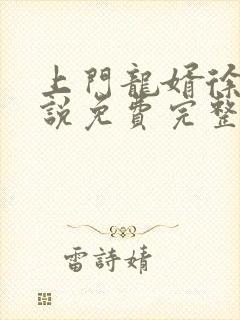 上門龍婿徐
說免費完整
雷詩婧